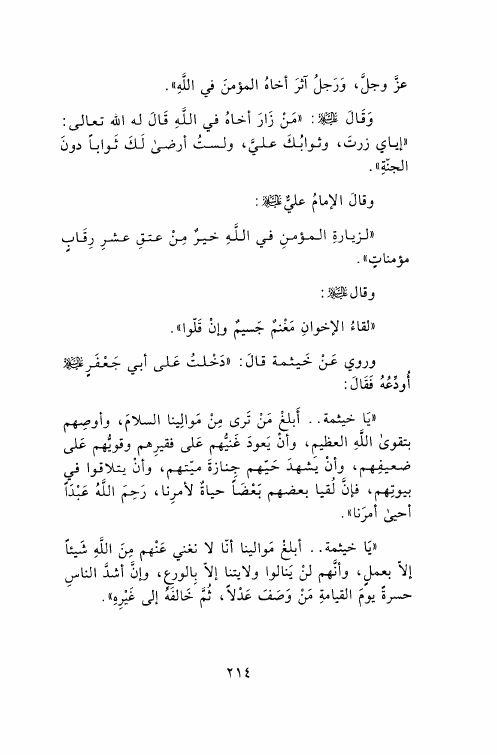 عزَّ وجلَّ، وَرَجلُ آثرَ أخاهُ المؤمنَ في اللَّهِ».
وَقَالَ ﷺ: «مَنْ زَارَ أخاهُ في اللَّهِ قَالَ له الله تعالى:
«إياي زرتَ، وثوابُكَ عليَّ، ولستُ أرضىٰ لَكَ ثَواباً دونَ
الجنّةِ».
وقالَ الإمامُ عليٌّ عليه السلام:
«لزيارةِ المؤمنِ في اللَّهِ خيرٌ مِنْ عتقِ عشرِ رِقَابٍ
مؤمناتٍ».
وقال عليه السلام:
«لقاءُ الإخوانِ مَغْنمٌ جَسيمٌ وإنْ قَلّوا».
وروي عَنْ خَيثمة قالَ: «دَخْلتُ عَلى أبي جَعْفَرٍ عليه السلام
أُودِّعُهُ فَقَالَ:
«يَا خيثمة.. أَبلغْ مَنْ تَرى مِنْ مَوالينا السلامَ، وأوصِهم
بتقوىٰ اللَّهِ العظيمِ، وأنْ يَعودَ غَنيُّهم عَلى فقيرِهم وقويُّهم عَلى
ضعيفِهم، وأنْ يَشهدَ حَيّهم جِنازةَ ميّتهم، وأنْ يتلاقوا في
بيوتِهم، فإنَّ لُقيا بعضهم بَعْضَاً حياةٌ لأمرِنا، رَحِمَ اللَّهُ عَبْدَاً
أحيىٰ أمرَنا».
«يَا خيثمة.. أبلغْ مَوالينا أنّا لا نغني عَنْهم مِنَ اللَّهِ شَيئاً
إلاّ بعملٍ، وأنَّهم لنْ يَنالوا ولايتنا إلاّ بِالورعِ، وإنَّ أشدَّ الناسِ
حسرةً يومَ القيامةِ مَنْ وَصَفَ عَدْلاً، ثُمَّ خَالفَهُ إلى غَيْرِهِ».
٢١٤